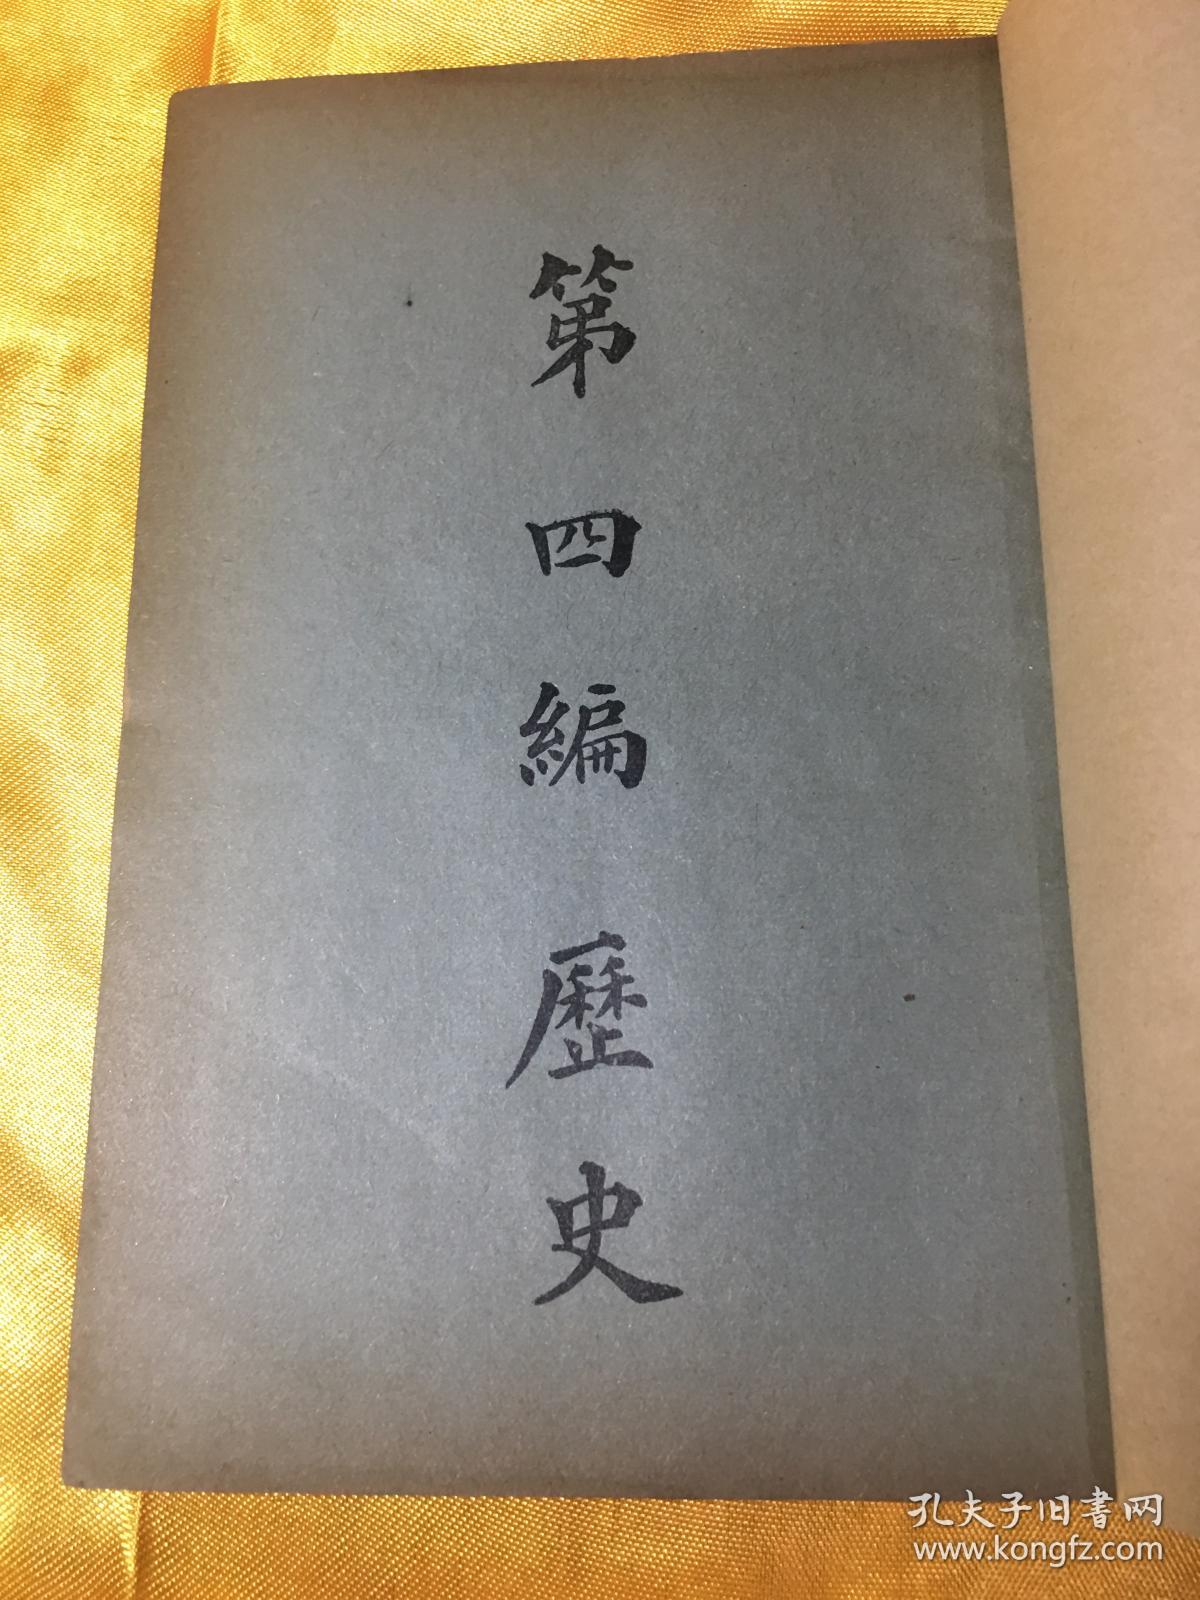 第四編歷史
孔夫子旧書网
www.kongfz.com